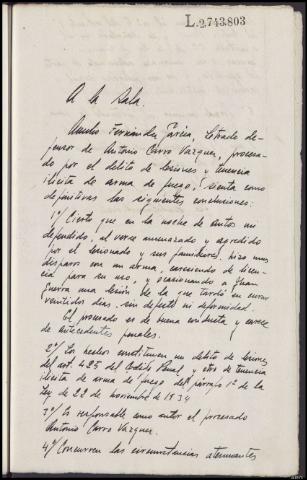 L.2.743.803
A la Sala.
Aurelio Fernández García, Letrado de-
fensor de Antonio Carro Vazquez, procesa-
do por el delito de lesiones y tenencia
ilícita de arma de fuego, sienta como
definitivas las siguientes conclusiones:
1ª) Cierto que en la noche de autos mi
defendido, al verse amenazado y agredido
por el lesionado y sus familiares, hizo unos
disparos con un arma, careciendo de licen-
cia para su uso, y ocasionando a Juan
Guerra una lesión de la que tardó en curar
veintidos dias, sin defecto ni deformidad.
El procesado es de buena conducta y carece
de antecedentes penales.
2ª) Los hechos constituyen un delito de lesiones
del art. 425 del Codigo Penal, y otro de tenencia
ilícita de arma de fuego del párrafo 1º de la
Ley de 22 de noviembre de 1934
3ª) Es responsable como autor el procesado
Antonio Carro Vazquez.
4ª) Concurren las circunstancias atenuantes